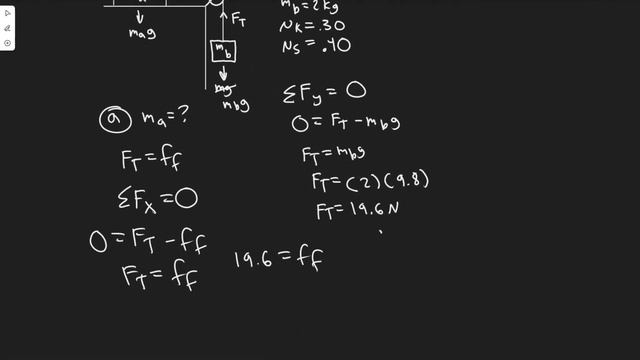 m_a g
F_T
m_b
mg
m_b g
m_b = 2 kg
μ_k = .30
μ_s = .40
ⓐ m_a = ?
F_T = f_f
ΣF_x = 0
0 = F_T - f_f
F_T = f_f
19.6 = f_f
ΣF_y = 0
0 = F_T - m_b g
F_T = m_b g
F_T = (2)(9.8)
F_T = 19.6 N